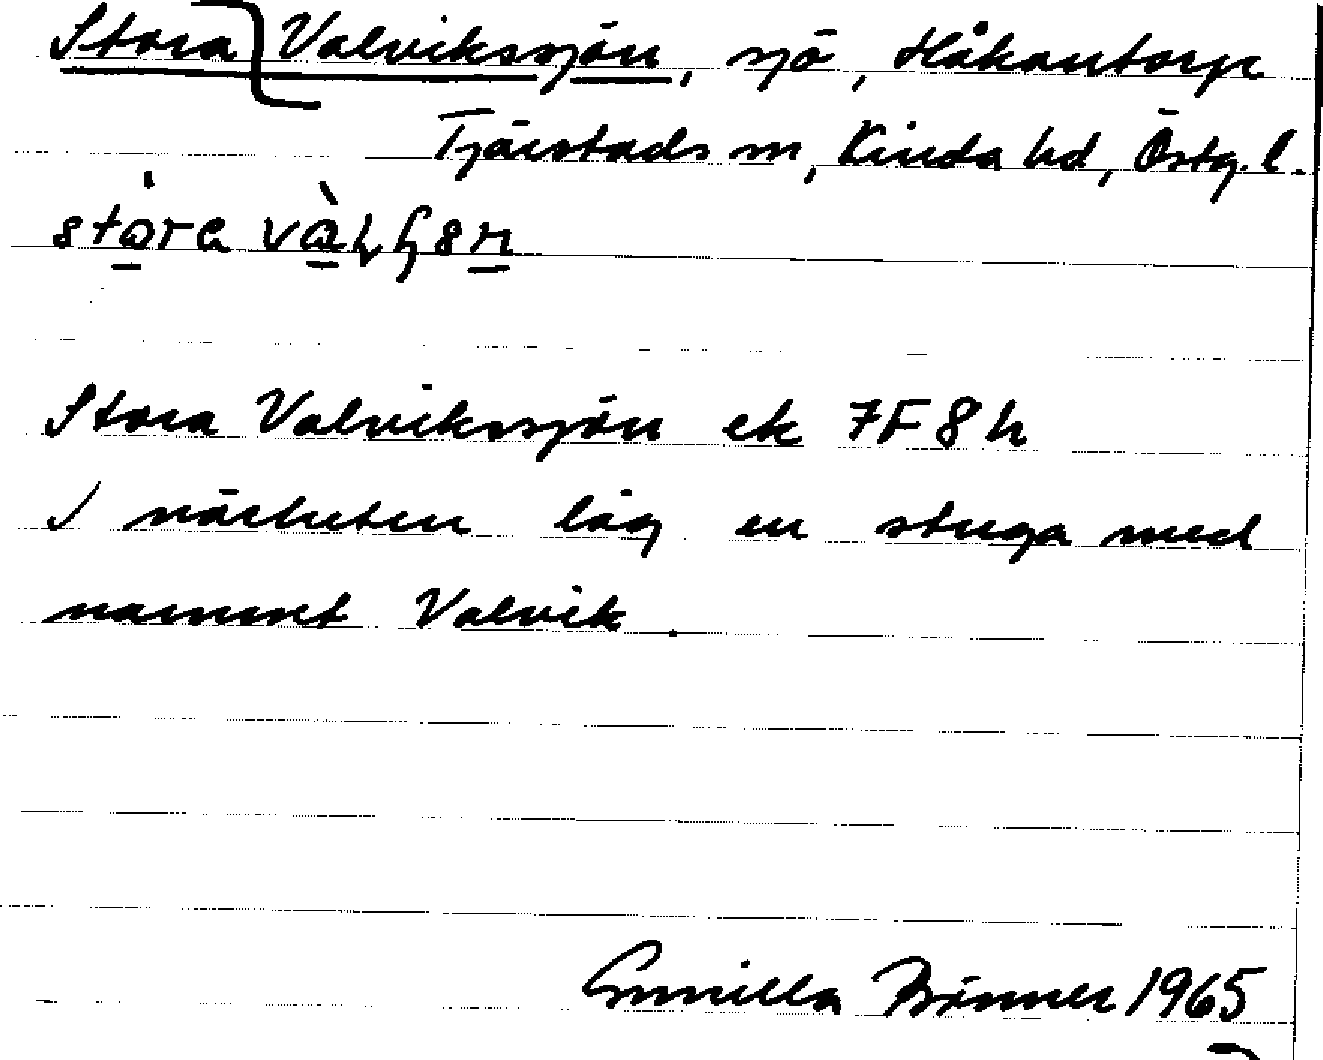 Stora Valvikssjön, sjö, Håkantorp
Tjärstads sn, Kinda hd, Östg. l.
Stora Valvikssjön ek 7F8h
I närheten låg en stuga med
namnet Valvik.
Gunilla Brönner 1965